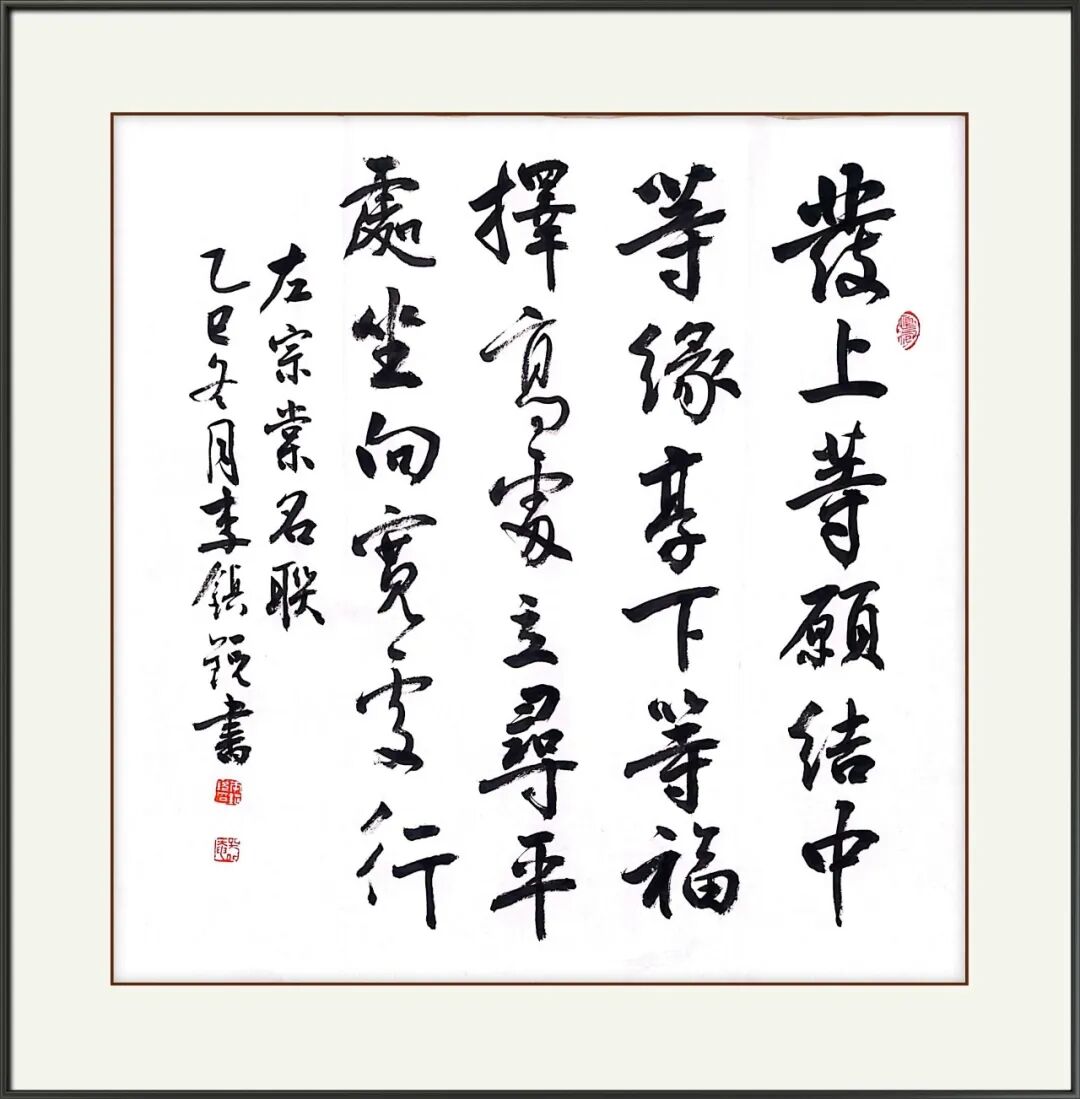 發上等願結中
等緣享下等福
擇高處立尋平
處坐向寬處行
左宗棠名聯
乙巳冬月李鎮書